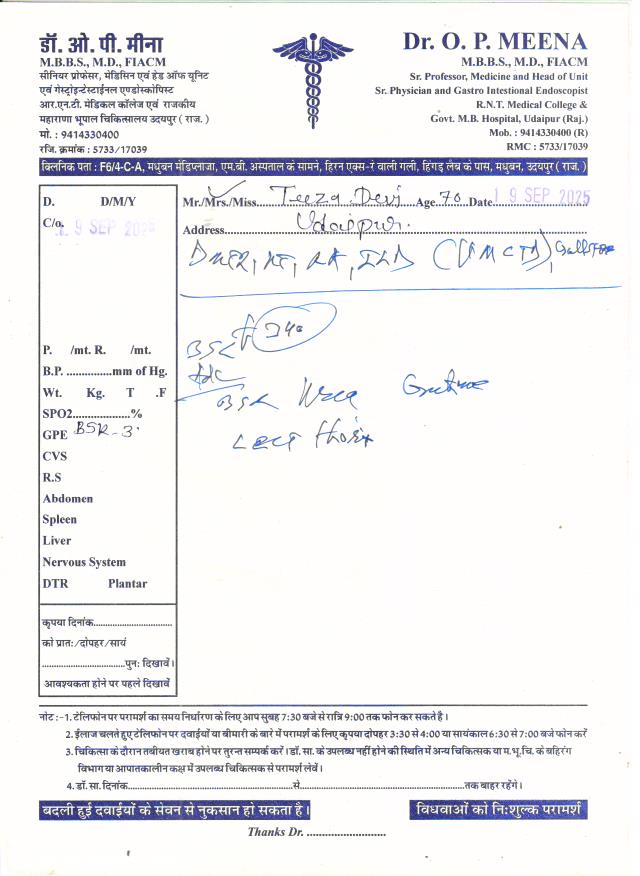 डॉ. ओ. पी. मीना
M.B.B.S., M.D., FIACM
सीनियर प्रोफेसर, मेडिसिन एवं हेड ऑफ यूनिट
एवं गेस्ट्रोइन्टेस्टाईनल एण्डोस्कोपिस्ट
आर.एन.टी. मेडिकल कॉलेज एवं राजकीय
महाराणा भूपाल चिकित्सालय उदयपुर ( राज. )
मो. : 9414330400
रजि. क्रमांक : 5733/17039
Dr. O. P. MEENA
M.B.B.S., M.D., FIACM
Sr. Professor, Medicine and Head of Unit
Sr. Physician and Gastro Intestional Endoscopist
R.N.T. Medical College &
Govt. M.B. Hospital, Udaipur (Raj.)
Mob. : 9414330400 (R)
RMC : 5733/17039
क्लिनिक पता : F6/4-C-A, मधुबन मेडिप्लाजा, एम.बी. अस्पताल के सामने, हिरन एक्स-रे वाली गली, हिंगड़ लैब के पास, मधुबन, उदयपुर ( राज. )
D. D/M/Y
C/o. 19 SEP 2025
Mr./Mrs./Miss. Teeza Devi Age 70 Date 19 SEP 2025
Address Udaipur.
BSL
BSR
P. /mt. R. /mt.
B.P. ...............mm of Hg.
Wt. Kg. T .F
SPO2...................%
GPE BSR-3
CVS
R.S
Abdomen
Spleen
Liver
Nervous System
DTR Plantar
कृपया दिनांक..............................
को प्रातः/दोपहर/सायं
................................पुनः दिखावें।
आवश्यकता होने पर पहले दिखावें
नोट :-1. टेलिफोन पर परामर्श का समय निर्धारण के लिए आप सुबह 7:30 बजे से रात्रि 9:00 तक फोन कर सकते है।
2. ईलाज चलते हुए टेलिफोन पर दवाईयों या बीमारी के बारे में परामर्श के लिए कृपया दोपहर 3:30 से 4:00 या सायंकाल 6:30 से 7:00 बजे फोन करें
3. चिकित्सा के दौरान तबीयत खराब होने पर तुरन्त सम्पर्क करें। डॉ. सा. के उपलब्ध नहीं होने की स्थिति में अन्य चिकित्सक या म.भू.चि. के बहिरंग
विभाग या आपातकालीन कक्ष में उपलब्ध चिकित्सक से परामर्श लेवें।
4. डॉ. सा. दिनांक..............................से..............................तक बाहर रहेंगे।
बदली हुई दवाईयों के सेवन से नुकसान हो सकता है।
विधवाओं को निःशुल्क परामर्श
Thanks Dr. ..........................